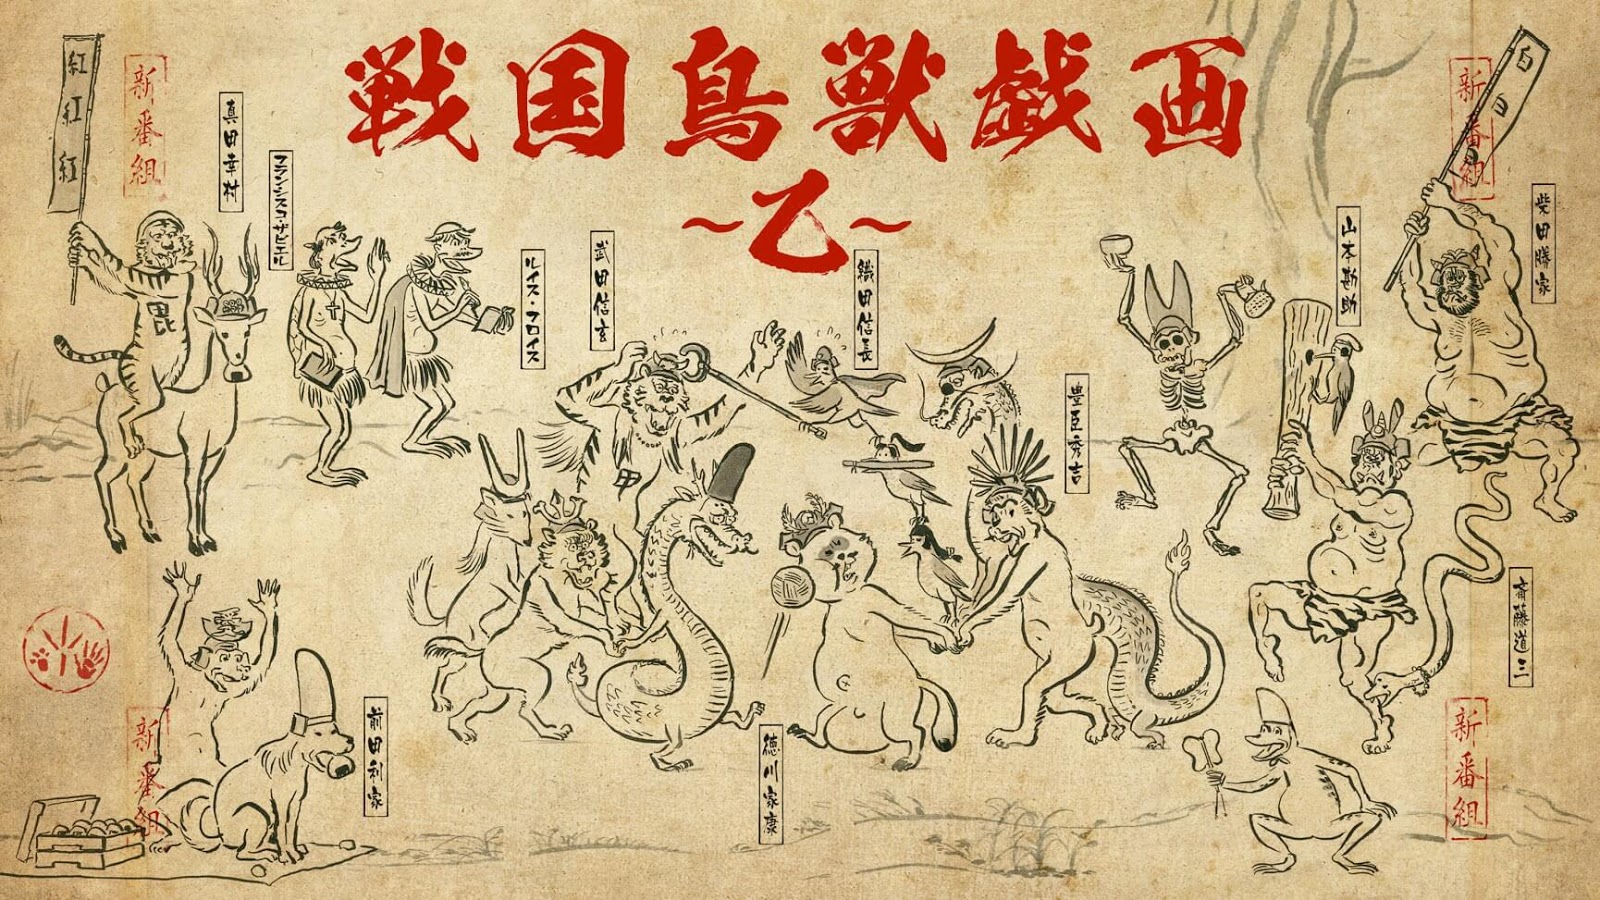 戦国鳥獣戯画
~乙~
紅
紅
紅
新番組
真田幸村
フランシスコ・ザビエル
ルイス・フロイス
武田信玄
織田信長
豊臣秀吉
山本勘助
白
日
日
新番組
柴田勝家
毘
甲
斉藤道三
前田利家
徳川家康
新番組
新番組